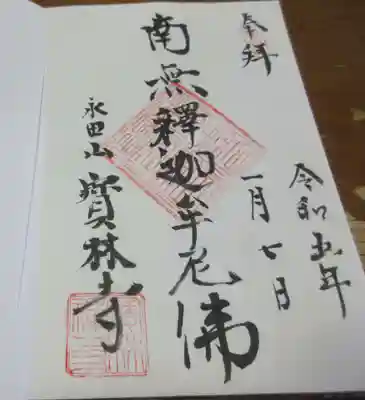 奉拜
令和五年
一月七日
南無釋迦牟尼佛
永田山寳林寺